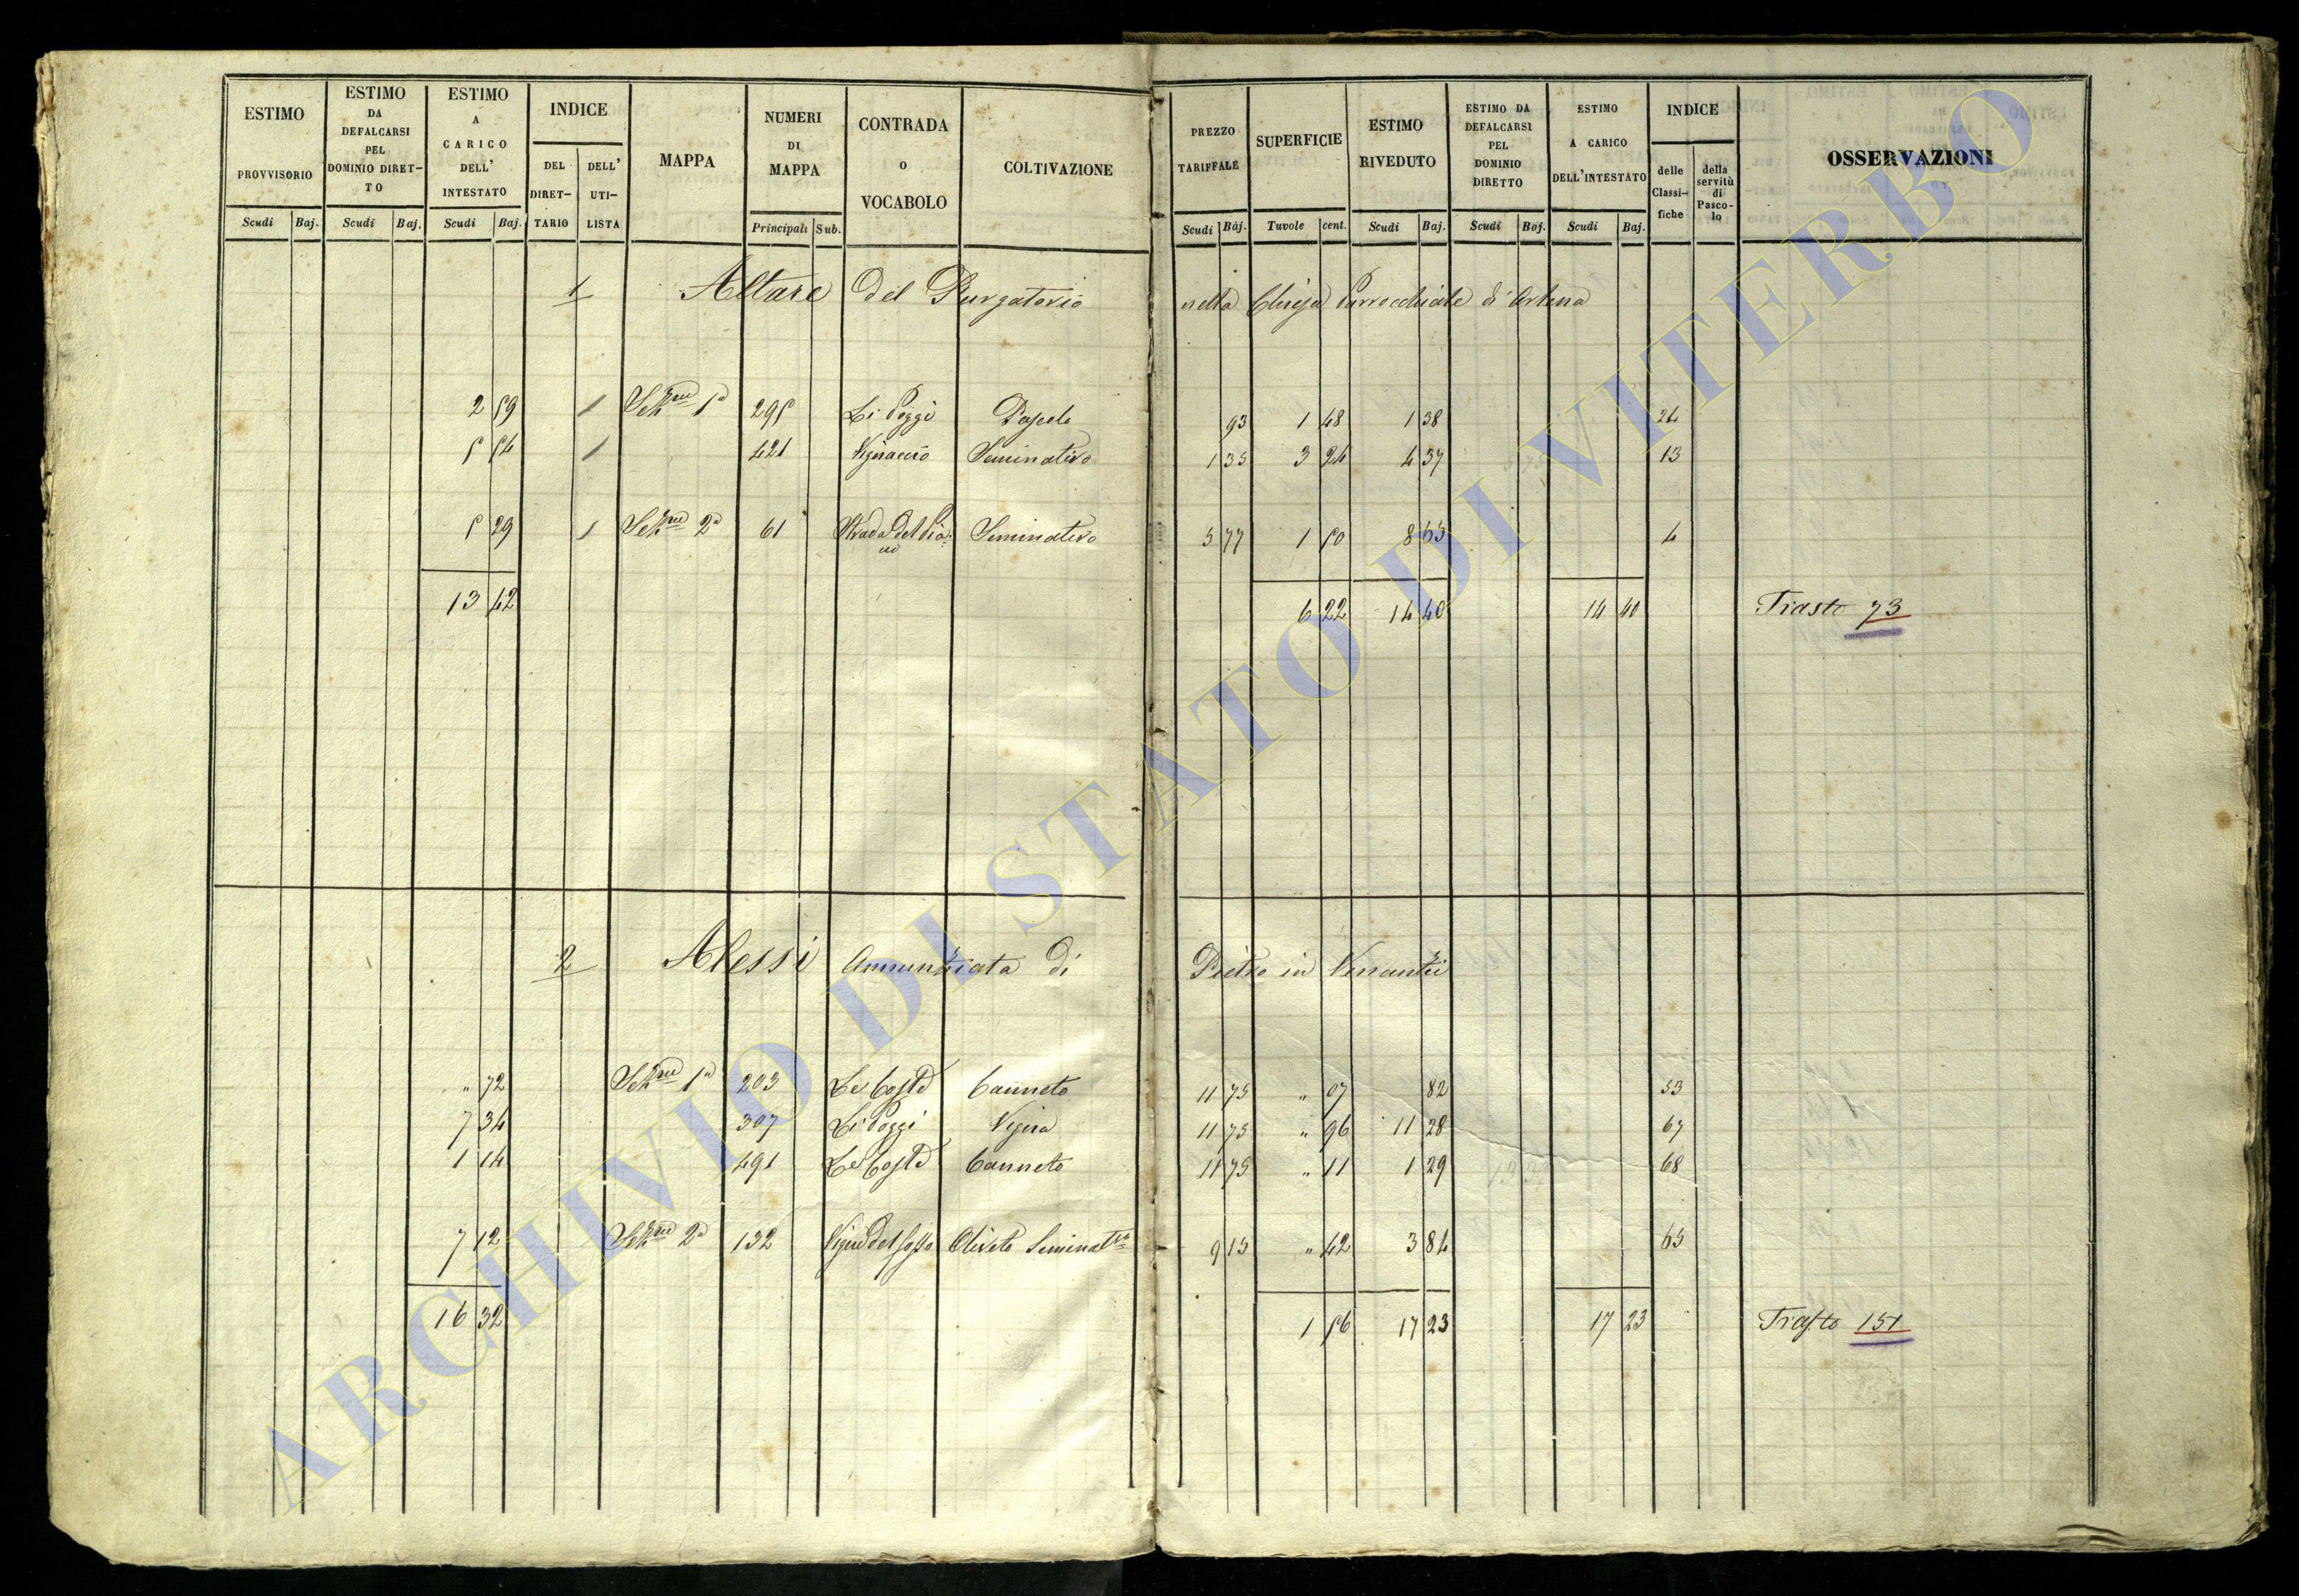 ESTIMO PROVVISORIO Scudi Baj.
ESTIMO DA DEFALCARSI PEL DOMINIO DIRETTO Scudi Baj.
ESTIMO A CARICO DELL' INTESTATO Scudi Baj.
INDICE DEL DIRET-TARIO DELL' UTI-LISTA
MAPPA
NUMERI DI MAPPA Principali Sub.
CONTRADA o VOCABOLO
COLTIVAZIONE
PREZZO TARIFFALE Scudi Baj.
SUPERFICIE Tavole cent.
ESTIMO RIVEDUTO Scudi Baj.
ESTIMO DA DEFALCARSI PEL DOMINIO DIRETTO Scudi Baj.
ESTIMO A CARICO DELL'INTESTATO Scudi Baj.
INDICE delle Classi-fiche della servitù di Pasco-lo
OSSERVAZIONI
1 Altare del Purgatorio nella Chiesa Parrocchiale di Arlena
2 59 1 Sezne 1a 295 Li Poggi Pascolo 93 1 48 1 38 24
5 54 1 421 Vignaccio Seminativo 1 35 3 24 4 37 13
5 29 1 Sezne 2a 61 Strada del Pia- Seminativo 5 77 1 50 8 65 4
13 42 6 22 14 40 14 40 Trasto 73
2 Alessi Annunziata di Pietro in Venantzi
" 72 Sezne 1a 203 Le Coste Canneto 11 75 " 07 82 53
7 34 307 Li Poggi Vigna 11 75 " 96 11 28 67
1 14 491 Le Coste Canneto 11 75 " 11 1 29 68
7 12 Sezne 2a 132 Vigne del fosso Oliveto Seminatvo 9 15 " 42 3 84 65
16 32 1 56 17 23 17 23 Trasto 151
ARCHIVIO DI STATO DI VITERBO